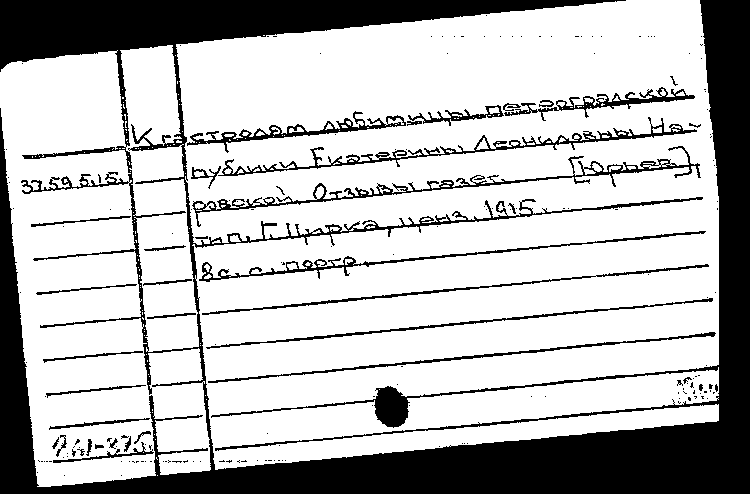 К гастролям любимицы петроградской
37.59.5.15. публики Екатерины Леонидовны На-
ровской. Отзывы газет. [Юрьев],
тип. Г. Цирка, ценз. 1915.
8 с. с. портр.
761-375